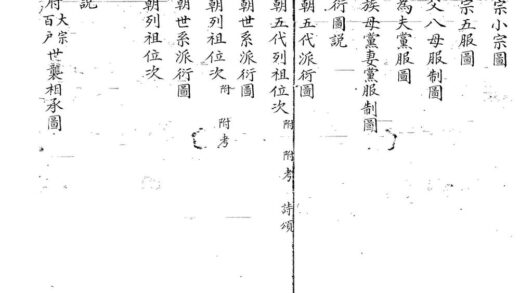 宗小宗圖
宗五服圖
父八母服制圖
為夫黨服圖
族母黨妻黨服制圖
衍圖説
朝五代派衍圖
朝五代列祖位次 附 附考 詩頌
朝世系派衍圖
朝列祖位次 附 附考
朝世系派衍圖
朝列祖位次
説
府大宗百户世襲相承圖